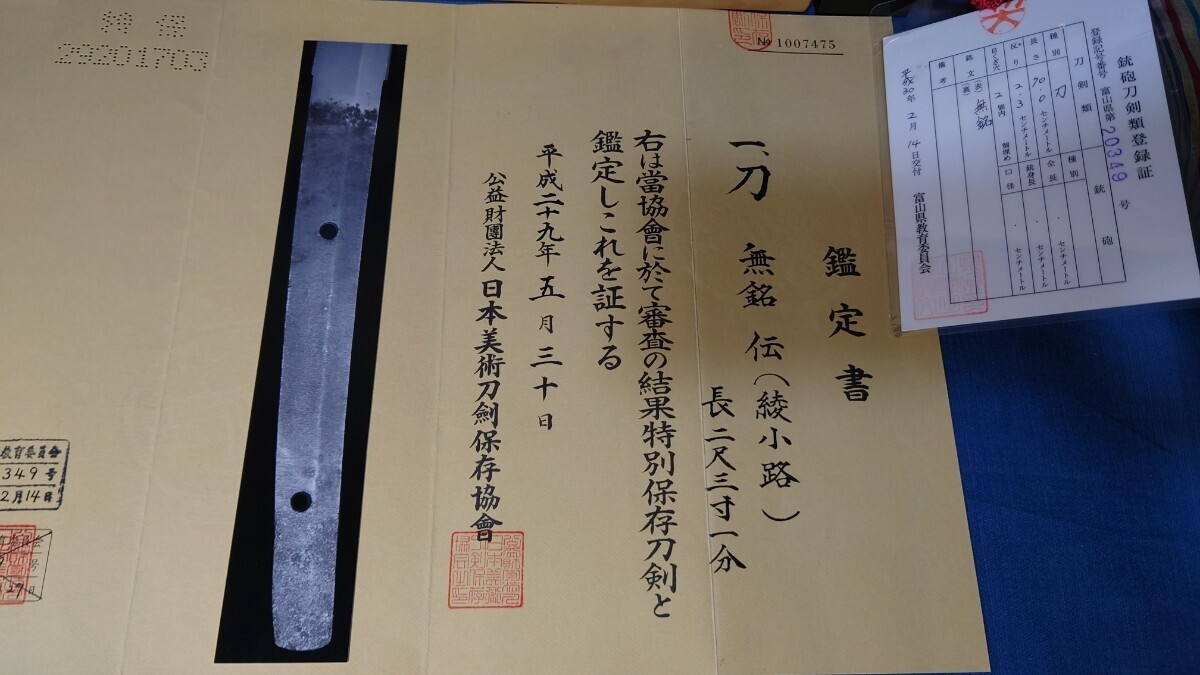 鑑定書
一、刀 無銘 伝(綾小路)
長二尺三寸一分
右は當協會に於て審査の結果特別保存刀剣と
鑑定しこれを証する
平成二十九年五月三十日
公益財團法人日本美術刀劍保存協會
№ 1007475
特保
29201703
銃砲刀剣類登録証
登録記号番号 富山県第 20349 号
刀剣類
銃砲
種別 刀
長さ 70.0 センチメートル
反り 2.3 センチメートル
目くぎ穴 2 個
銘文 (表) 無銘
(裏)
備考
種別
全長 . センチメートル
銃身長 . センチメートル
口径 . センチメートル
平成30年2月14日交付
富山県教育委員会
教育委員会
349号
2月14日
号
27日